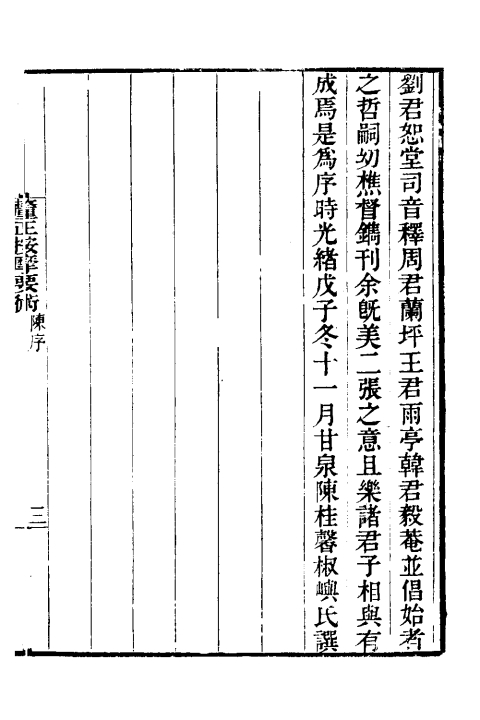 劉君恕堂司音釋周君蘭坪王君雨亭韓君毅菴並倡始者
之哲嗣幼樵督鐫刊余旣美二張之意且樂諸君子相與有
成焉是爲序時光緖戊子冬十一月甘泉陳桂馨椒嶼氏譔
釐正按摩要術
陳序
三